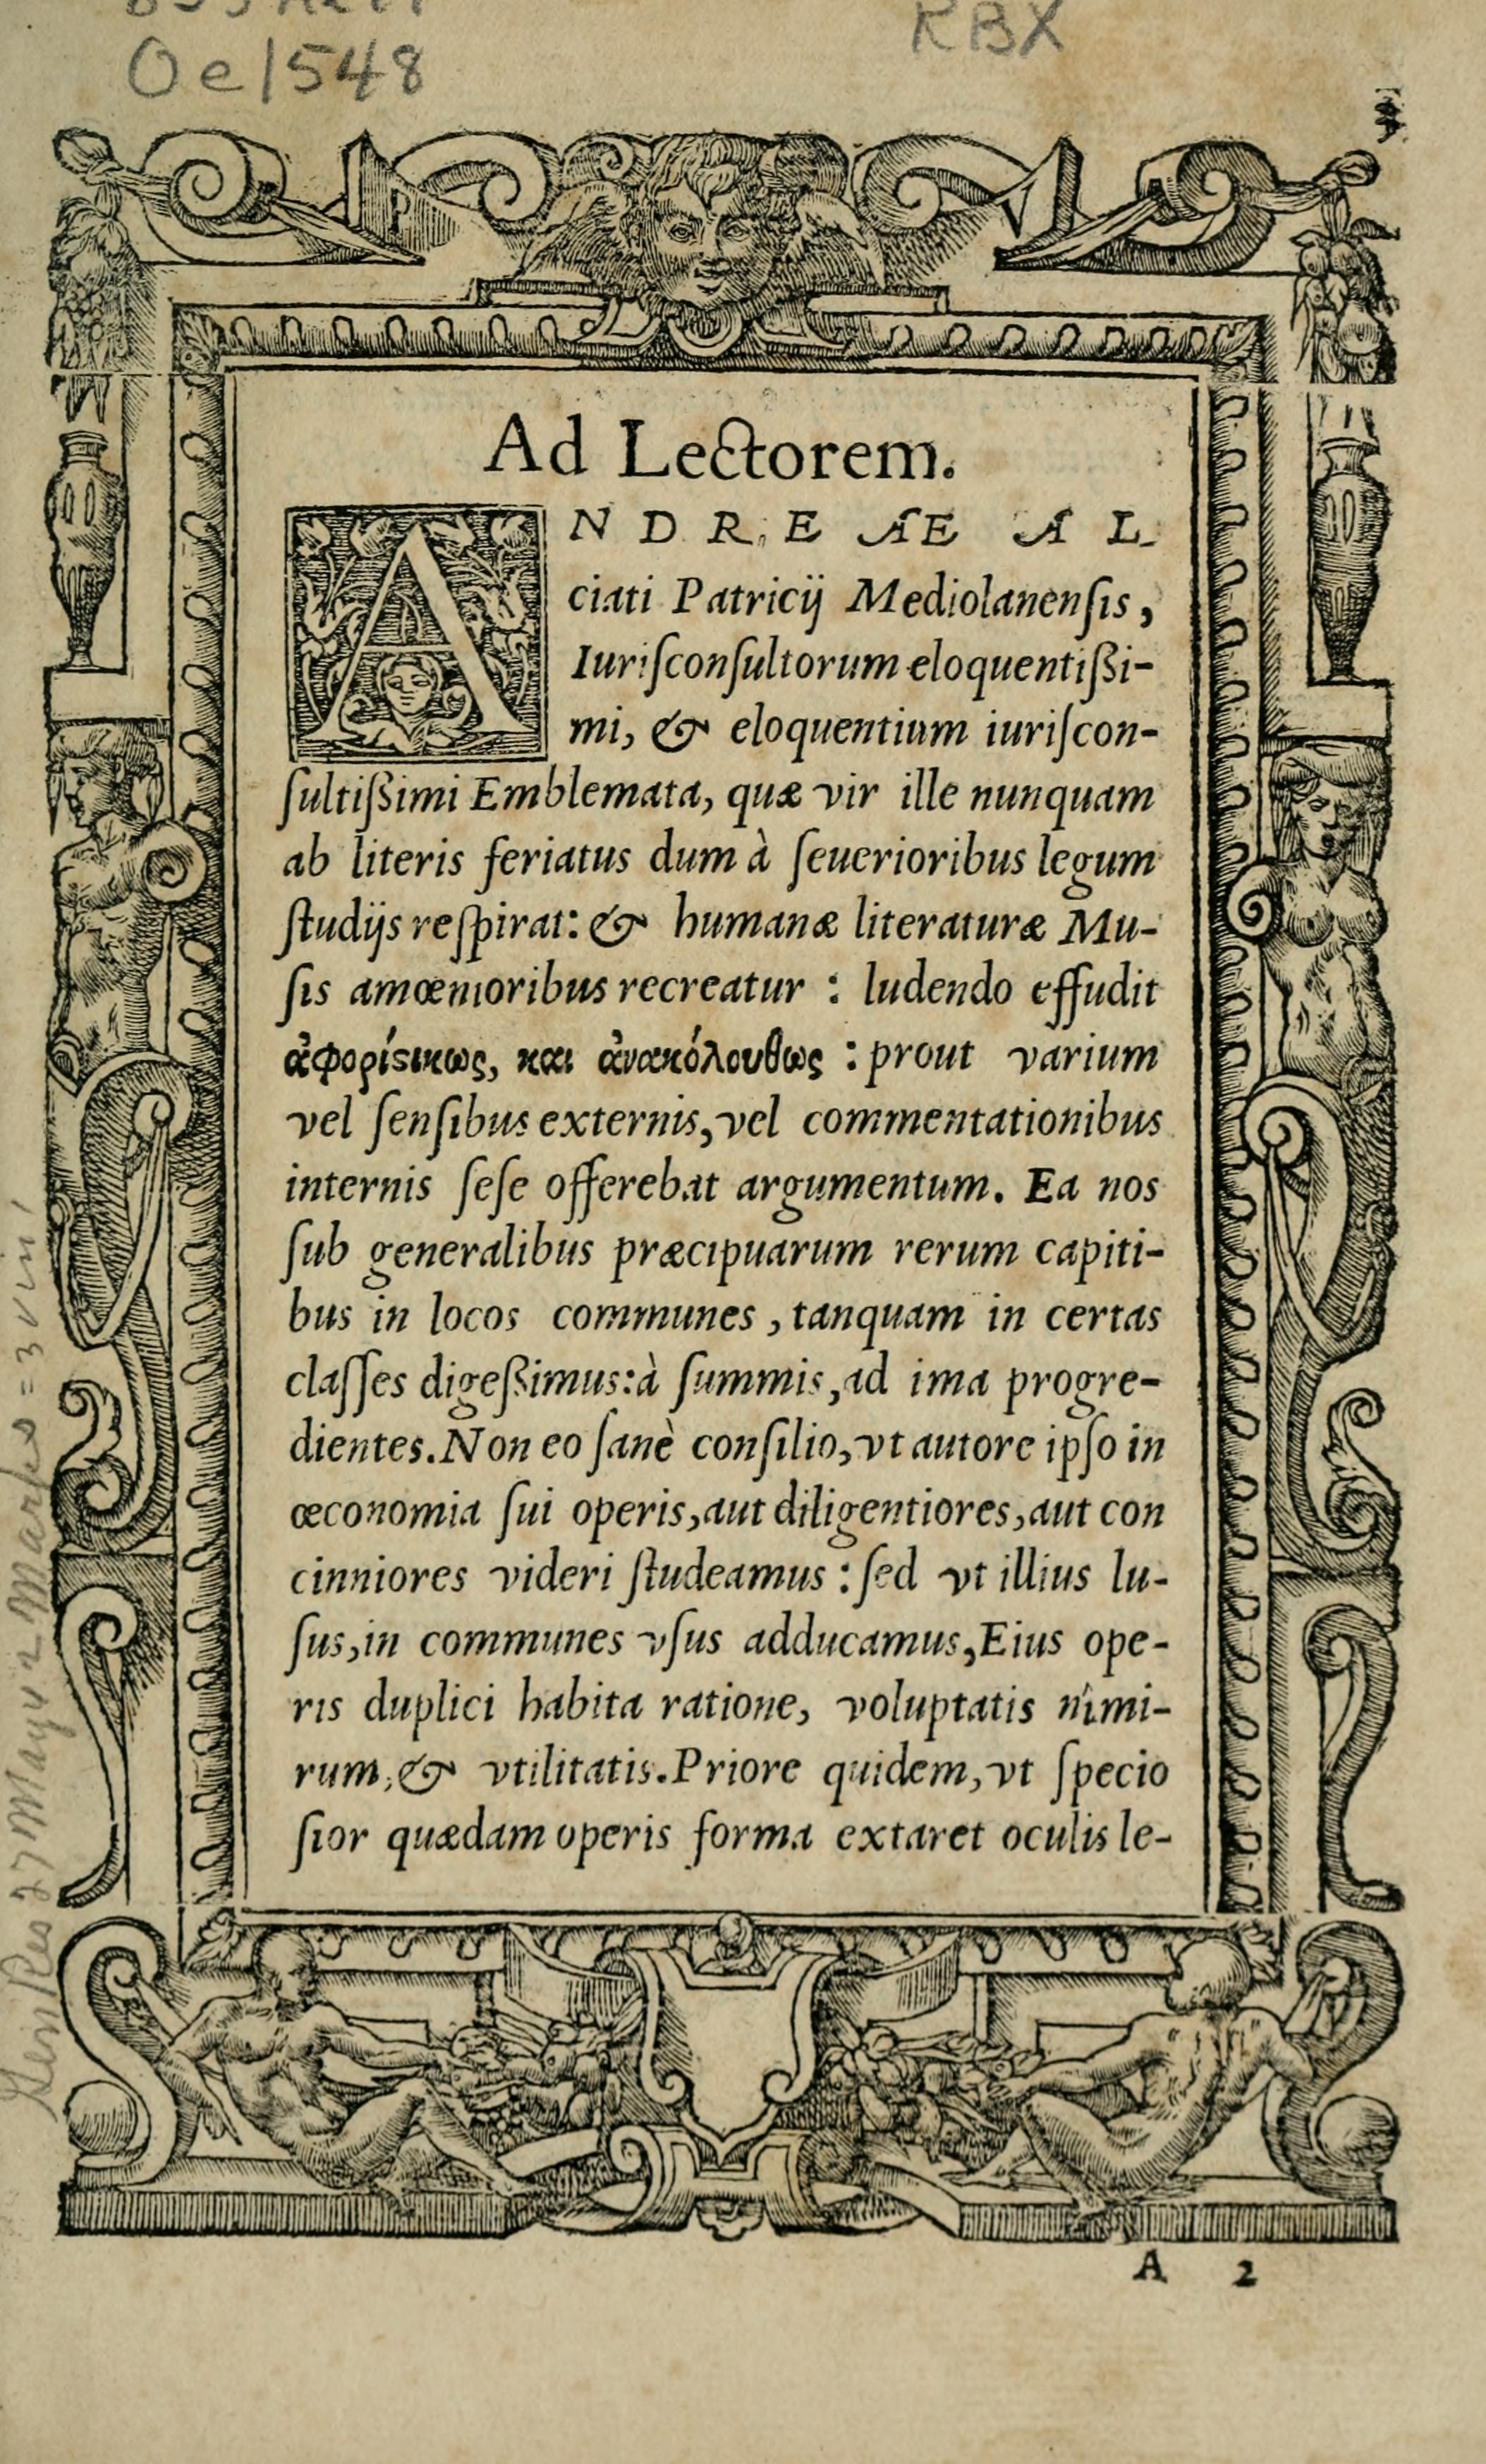 Oe1548
RBX
3
P V
Ad Lectorem.
ANDREAE AL-
ciati Patricij Mediolanenſis,
Iuriſconſultorum eloquentißi-
mi, & eloquentium iuriſcon-
ſultißimi Emblemata, quæ vir ille nunquam
ab literis feriatus dum à ſeuerioribus legum
ſtudijs reſpirat: & humanæ literaturæ Mu-
ſis amœnioribus recreatur : ludendo effudit
ἀφορίϛικως, και ἀνακόλουθως : prout varium
vel ſenſibus externis, vel commentationibus
internis ſeſe offerebat argumentum. Ea nos
ſub generalibus præcipuarum rerum capiti-
bus in locos communes, tanquam in certas
claſſes digeßimus: à ſummis, ad ima progre-
dientes. Non eo ſanè conſilio, vt autore ipſo in
œconomia ſui operis, aut diligentiores, aut con
cinniores videri ſtudeamus : ſed vt illius lu-
ſus, in communes vſus adducamus, Eius ope-
ris duplici habita ratione, voluptatis nimi-
rum, & vtilitatis. Priore quidem, vt ſpecio
ſior quædam operis forma extaret oculis le-
A 2
27 May 42